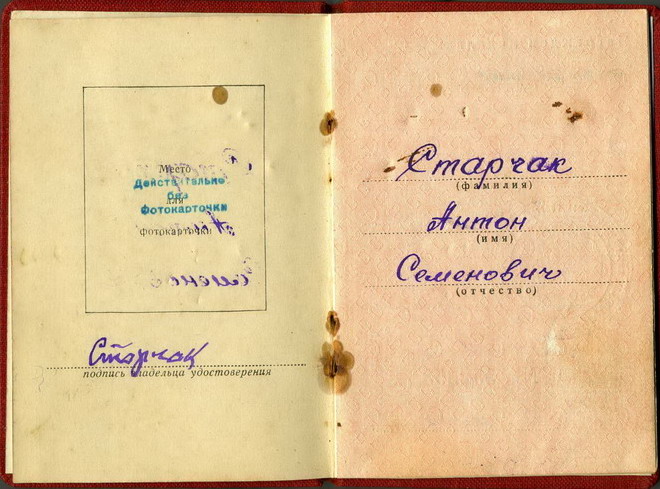 Место
Действительно
без
для
фотокарточки
фотокарточки
Старчак
подпись владельца удостоверения
Старчак
(фамилия)
Антон
(имя)
Семенович
(отчество)